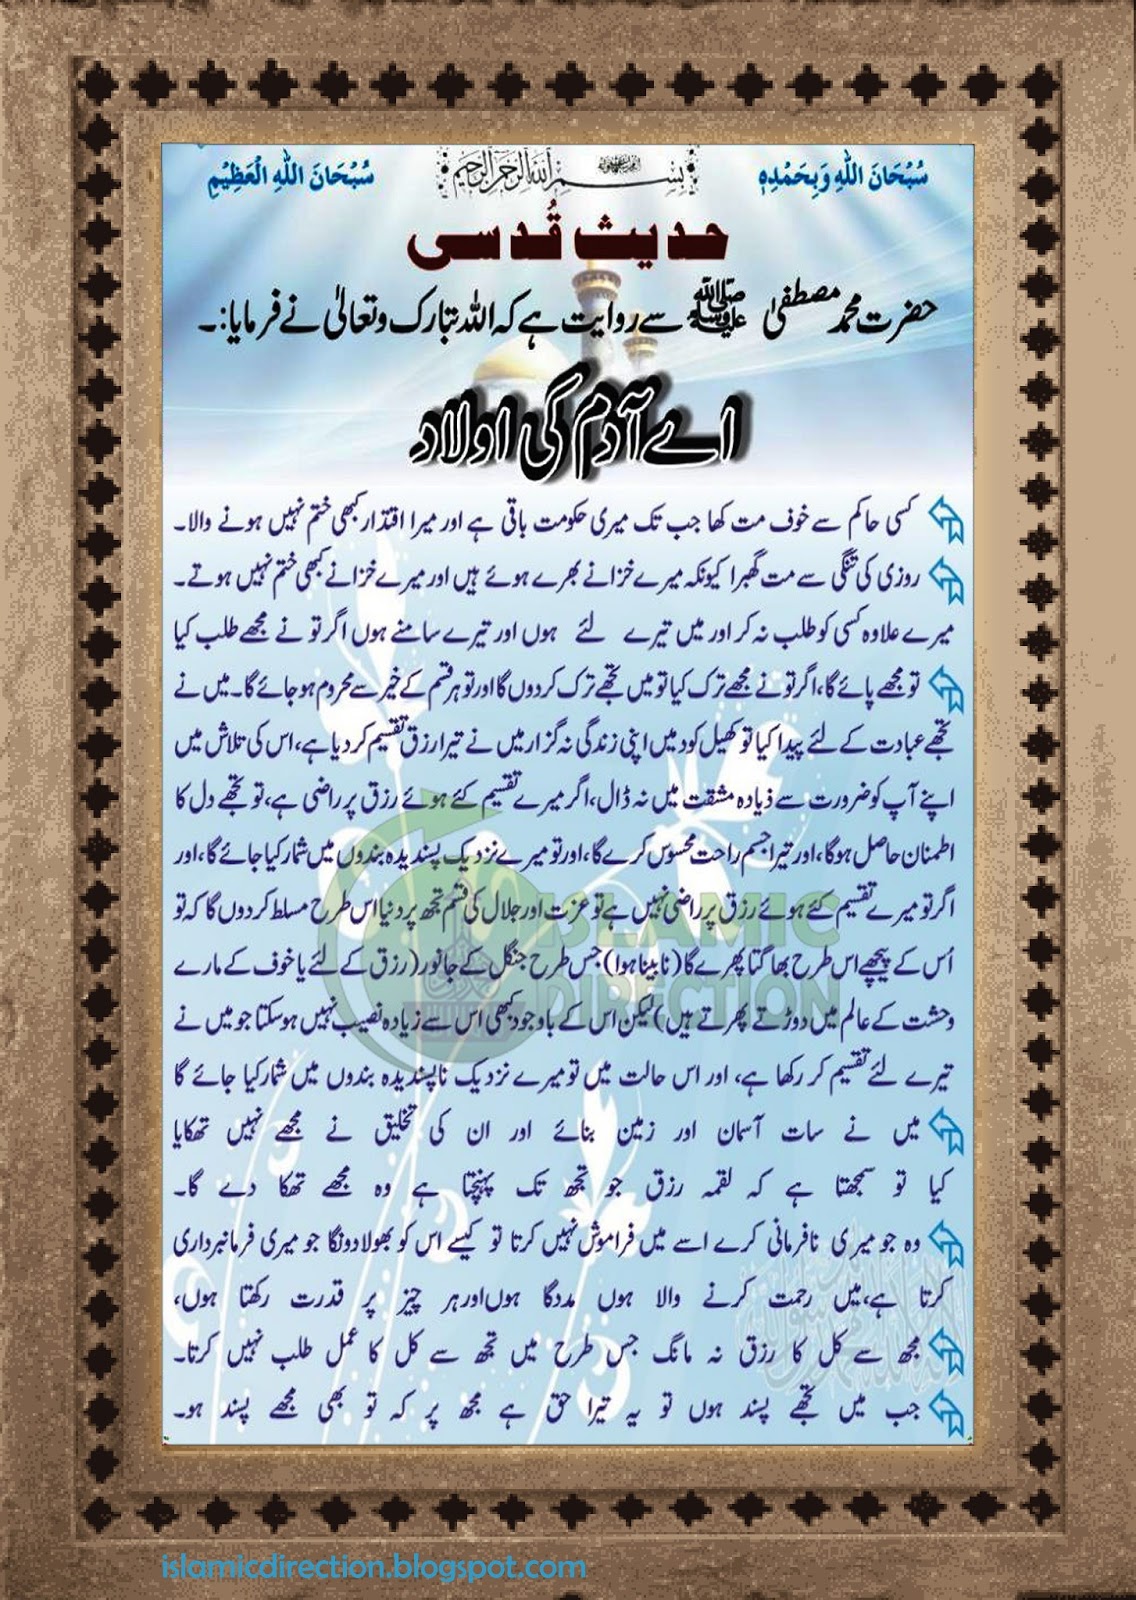 سُبْحَانَ اللّٰهِ وَبِحَمْدِہٖ
بِسْمِ اللّٰهِ الرَّحْمٰنِ الرَّحِيْمِ
سُبْحَانَ اللّٰهِ الْعَظِيْمِ
حدیث قُدسی
حضرت محمد مصطفیٰ ﷺ سے روایت ہے کہ اللہ تبارک وتعالیٰ نے فرمایا:۔
اے آدم کی اولاد
کسی حاکم سے خوف مت کھا جب تک میری حکومت باقی ہے اور میرا اقتدار کبھی ختم نہیں ہونے والا۔
روزی کی تنگی سے مت گھبرا کیونکہ میرے خزانے بھرے ہوئے ہیں اور میرے خزانے کبھی ختم نہیں ہوتے۔
میرے علاوہ کسی کو طلب نہ کر اور میں تیرے لئے ہوں اور تیرے سامنے ہوں اگر تو نے مجھے طلب کیا
تو مجھے پائے گا، اگر تو نے مجھے ترک کیا تو میں تجھے ترک کردوں گا اور تو ہر قسم کے خیر سے محروم ہو جائے گا۔ میں نے
تجھے عبادت کے لئے پیدا کیا تو کھیل کود میں اپنی زندگی نہ گزار میں نے تیرا رزق تقسیم کر دیا ہے، اس کی تلاش میں
اپنے آپ کو ضرورت سے ذیادہ مشقت میں نہ ڈال، اگر میرے تقسیم کئے ہوئے رزق پر راضی ہے، تو تجھے دل کا
اطمنان حاصل ہوگا، اور تیرا جسم راحت محسوس کرے گا، اور تو میرے نزدیک پسندیدہ بندوں میں شمار کیا جائے گا، اور
اگر تو میرے تقسیم کئے ہوئے رزق پر راضی نہیں ہے تو عزت اور جلال کی قسم تجھ پر دنیا اس طرح مسلط کردوں گا کہ تو
اُس کے پیچھے اس طرح بھاگتا پھرے گا (نابینا ہوا) جس طرح جنگل کے جانور (رزق کے لئے یا خوف کے مارے
وحشت کے عالم میں دوڑتے پھرتے ہیں) لیکن اس کے باوجود کبھی اس سے زیادہ نصیب نہیں ہوسکتا جو میں نے
تیرے لئے تقسیم کر رکھا ہے، اور اس حالت میں تو میرے نزدیک ناپسندیدہ بندوں میں شمار کیا جائے گا
میں نے سات آسمان اور زمین بنائے اور ان کی تخلیق نے مجھے نہیں تھکایا
کیا تو سمجھتا ہے کہ لقمہ رزق جو تجھ تک پہنچتا ہے وہ مجھے تھکا دے گا۔
وہ جو میری نافرمانی کرے اسے میں فراموش نہیں کرتا تو کیسے اس کو بھولادونگا جو میری فرمانبرداری
کرتا ہے، میں رحمت کرنے والا ہوں مددگا ہوں اور ہر چیز پر قدرت رکھتا ہوں،
مجھ سے کل کا رزق نہ مانگ جس طرح میں تجھ سے کل کا عمل طلب نہیں کرتا۔
جب میں تجھے پسند ہوں تو یہ تیرا حق ہے مجھ پر کہ تو بھی مجھے پسند ہو۔
ISLAMIC
DIRECTION
islamicdirection.blogspot.com